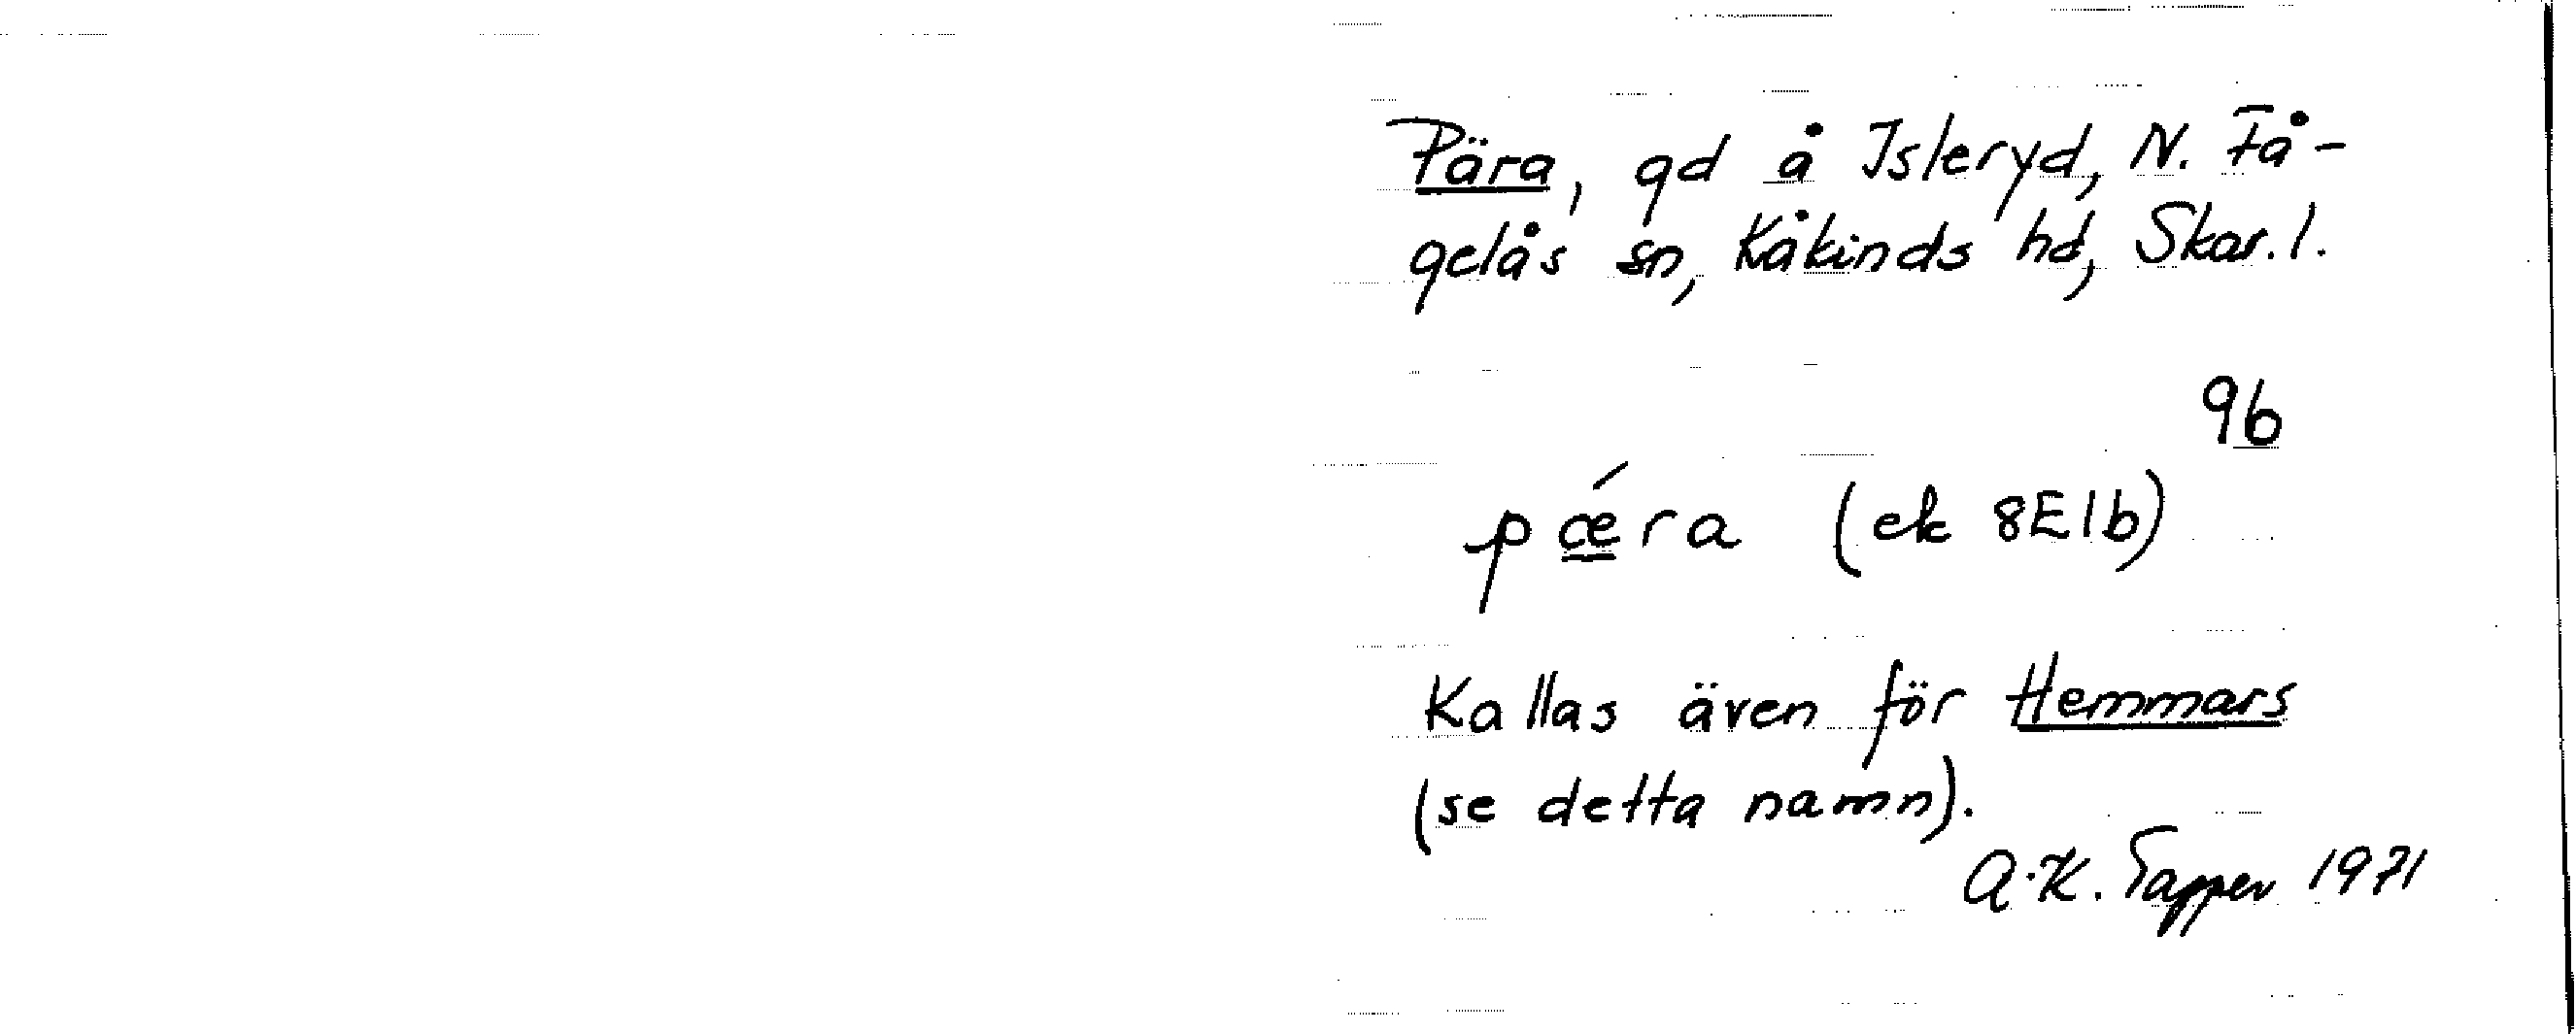 Pära, gd å Isleryd, N. Få-
gelås sn, Kåkinds hd, Skar. l.
96
pǽra (ek 8E1b)
Kallas även för Hemmars
(se detta namn).
A-K. Tapper 1971